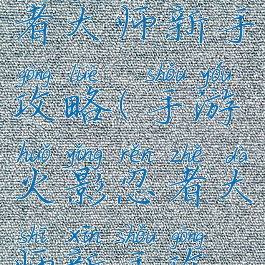 者大师新手
gōng lüè shǒu yóu
攻略(手游
huǒ yǐng rěn zhě dà
火影忍者大
shī xīn shǒu gōng